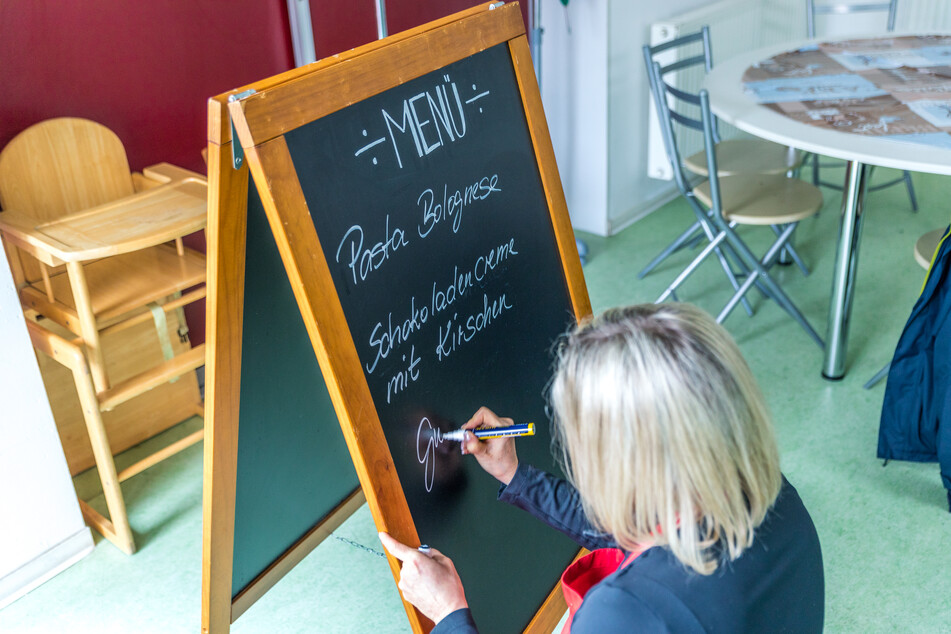 ÷MENÜ÷
Pasta Bolognese
Schokoladencreme
mit Kirschen
gu